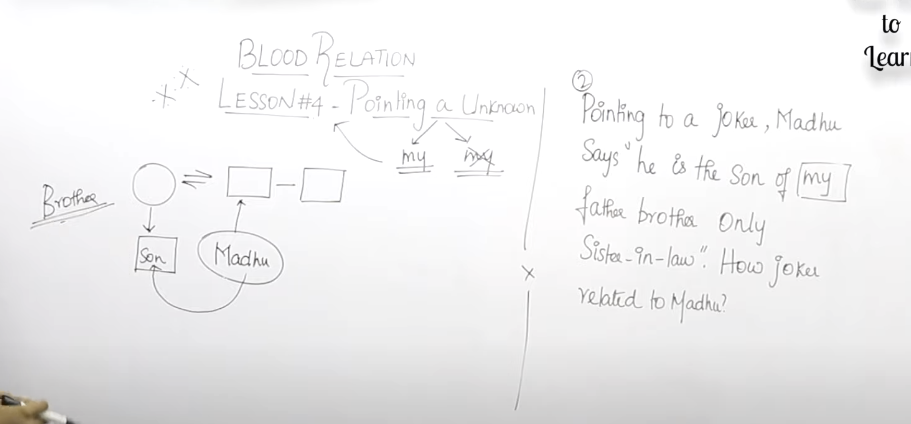 to
Lear
BLOOD RELATION
LESSON#4 - Pointing a Unknown
my my
Brother
Son
Madhu
②
Pointing to a joker, Madhu
Says "he is the Son of my
father brother Only
Sister-in-law". How joker
related to Madhu?